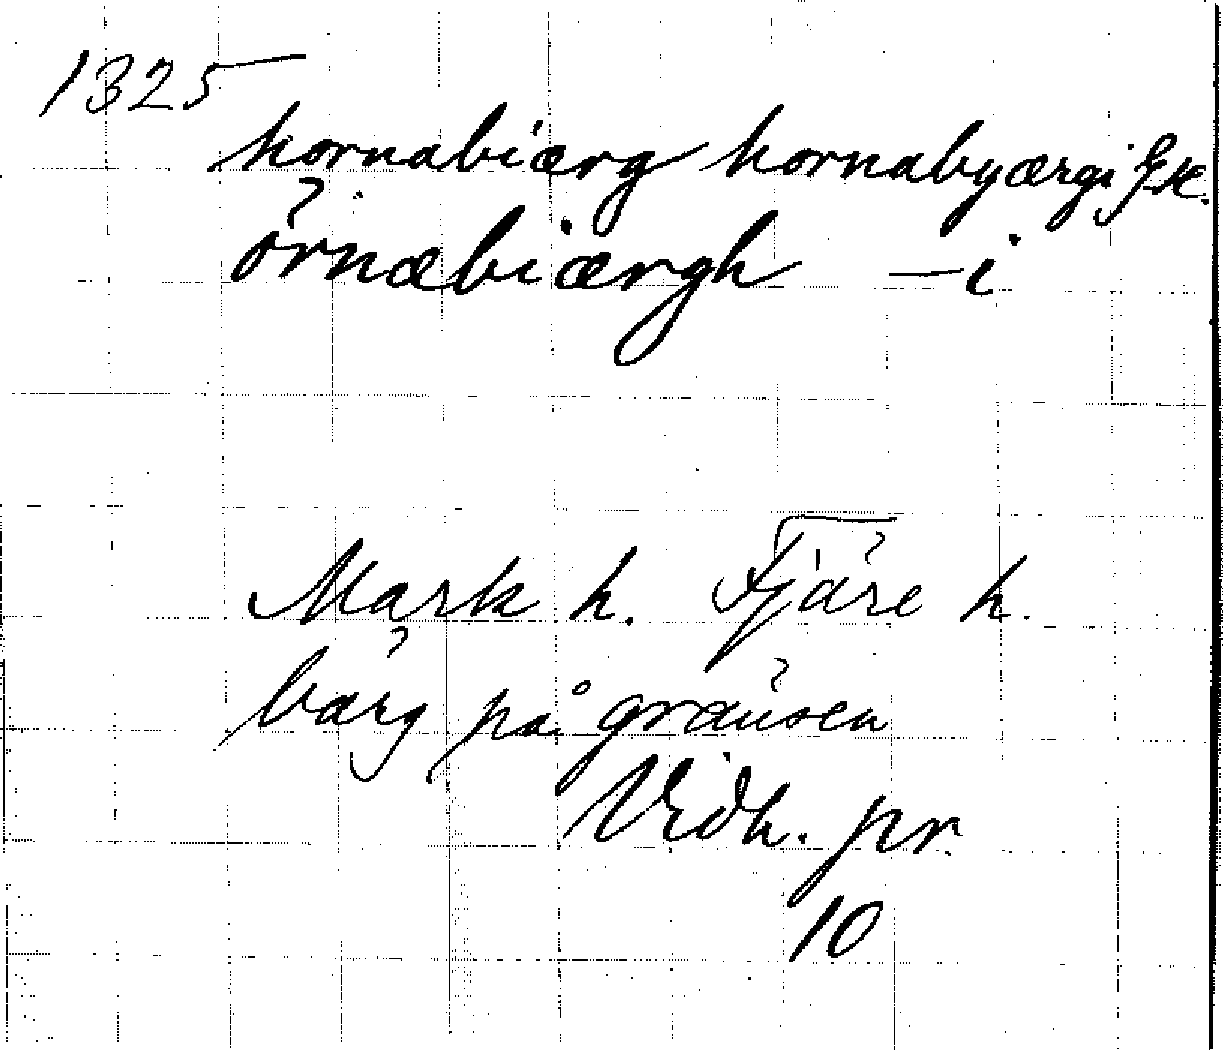 1325
hornabiærg hornabyærgi
örnæbiærgh — i
Mark h. Fjäre h.
bärg på gränsen
Vidh. pr.
10